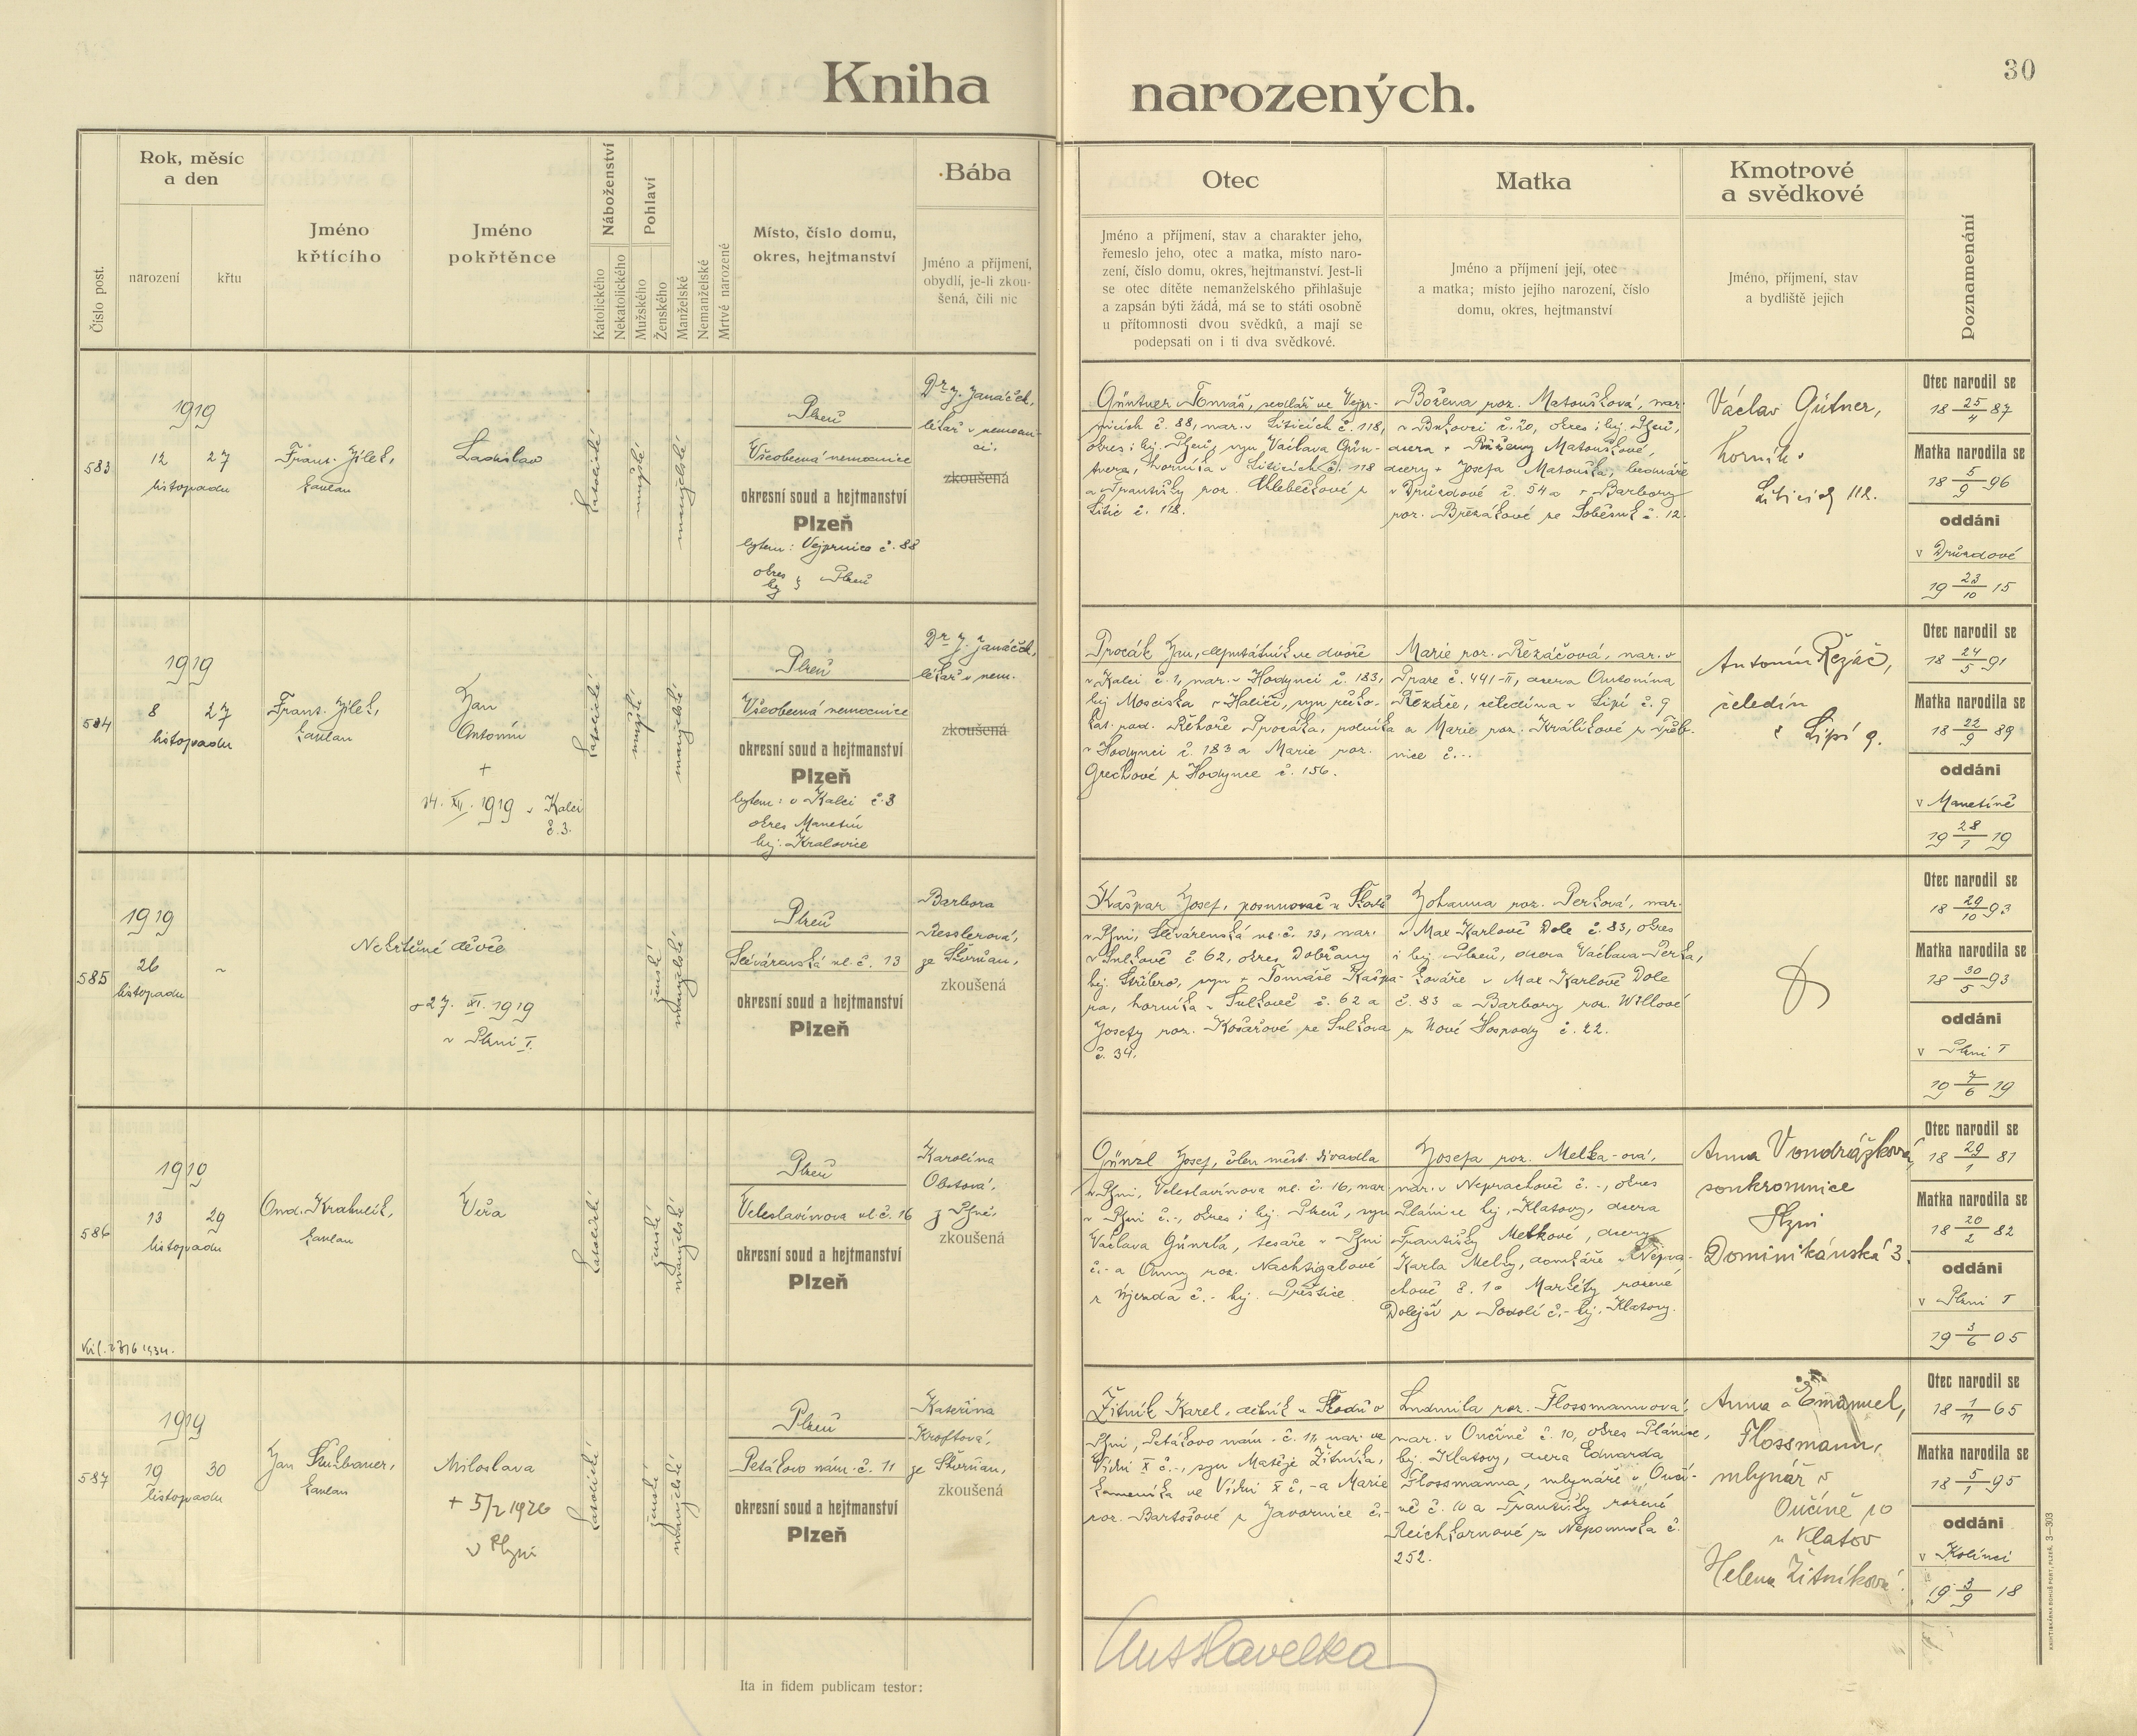 Kniha narozených.
30
Číslo post.
Rok, měsíc
a den
narození
křtu
Jméno
křtícího
Jméno
pokřtěnce
Náboženství
Katolického
Nekatolického
Pohlaví
Mužského
Ženského
Manželské
Nemanželské
Mrtvé narozené
Místo, číslo domu,
okres, hejtmanství
Bába
Jméno a příjmení,
obydlí, je-li zkou-
šená, čili nic
Otec
Jméno a příjmení, stav a charakter jeho,
řemeslo jeho, otec a matka, místo naro-
zení, číslo domu, okres, hejtmanství. Jest-li
se otec dítěte nemanželského přihlašuje
a zapsán býti žádá, má se to státi osobně
u přítomnosti dvou svědků, a mají se
podepsati on i ti dva svědkové.
Matka
Jméno a příjmení její, otec
a matka; místo jejího narození, číslo
domu, okres, hejtmanství
Kmotrové
a svědkové
Jméno, příjmení, stav
a bydliště jejich
Poznamenání
583
1919
12 27
listopadu
Frant. Jílek,
kaplan
Ladislav
katolické
mužské
manželské
Plzeň
Všeobecná nemocnice
okresní soud a hejtmanství
Plzeň
bytem: Vejprnice č. 88
okres
hej. Plzeň
Dr. J. Janáček,
lékař v nemocni-
ci.
zkoušená
Güntner Tomáš, sedlář ve Vejpr-
nicích č. 88, nar. v Liticích č. 118,
okres i hej. Plzeň, syn Václava Günt-
nera, horníka v Liticích č. 118
a Františky roz. Chlebečkové z
Litic č. 118.
Božena roz. Matoušková, nar.
v Bukovci č. 20, okres i hej. Plzeň,
dcera + Růženy Matouškové,
dcery + Josefa Matouška, bednáře
v Druzdové č. 54 a + Barbory
roz. Brezákové ze Soběsuk č. 12.
Václav Gütner,
horník v
Liticích 112.
Otec narodil se
18 25/4 87
Matka narodila se
18 5/9 96
oddáni
v Druzdové
19 23/10 15
584
1919
8 27
listopadu
Frant. Jílek,
kaplan
Jan
Antonín
+
14. XII. 1919 v Kalci
č. 3.
katolické
mužské
manželské
Plzeň
Všeobecná nemocnice
okresní soud a hejtmanství
Plzeň
bytem: v Kalci č. 3
okres Manetín
hej. Kralovice
Dr. J. Janáček,
lékař v nem.
zkoušená
Procák Jan, deputátník ve dvoře
v Kalci č. 1, nar. v Hodynci č. 183,
hej. Mosciska v Haliči, syn řecko-
kat. pod. Řehoře Procáka, rolníka
v Hodynci č. 183 a Marie roz.
Grechové z Hodynce č. 156.
Marie roz. Řezáčová, nar. v
Praze č. 441-II, dcera Antonína
Řezáče, čeledína v Lipí č. 9
a Marie roz. Králíkové z Třeb-
nice č. -.
Antonín Řezáč,
čeledín
v Lipí 9.
Otec narodil se
18 24/5 91
Matka narodila se
18 22/9 89
oddáni
v Manetíně
19 28/1 19
585
1919
26 -
listopadu
Nekřtěné děvče
+ 27. XI. 1919
v Plzni I.
ženské
manželské
Plzeň
Slévárenská ul. č. 13
okresní soud a hejtmanství
Plzeň
Barbora
Resslerová,
ze Skvrňan,
zkoušená
Kašpar Josef, posunovač u Škodů
v Plzni, Slévárenská ul. č. 13, nar.
v Sulkově č. 62, okres Dobřany
hej. Stříbro, syn + Tomáše Kašpa-
ra, horníka v Sulkově č. 62 a
Josefy roz. Kosařové ze Sulkova
č. 34.
Johanna roz. Perková, nar.
v Max Karlově Dole č. 83, okres
i hej. Plzeň, dcera Václava Perka,
kováře v Max Karlově Dole
č. 83 a Barbory roz. Willové
z Nové Hospody č. 22.
Otec narodil se
18 29/10 93
Matka narodila se
18 30/5 93
oddáni
v Plzni I
19 7/6 19
586
1919
13 29
listopadu
Ond. Krahulík,
kaplan
Věra
katolické
ženské
manželské
Plzeň
Veleslavínova ul. č. 16
okresní soud a hejtmanství
Plzeň
Karolína
Obstová,
z Plzně,
zkoušená
Günzl Josef, člen měst. divadla
v Plzni, Veleslavínova ul. č. 16, nar.
v Plzni č. -, okres i hej. Plzeň, syn
Václava Günzla, tesaře v Plzni
č. - a Anny roz. Nachtigalové
z Újezda č. - hej. Přeštice
Josefa roz. Melka-ová,
nar. v Neprachově č. -, okres
Plánice hej. Klatovy, dcera
Františky Melkové, dcery
Karla Melky, domkáře v Nepra-
chově č. 1 a Markéty rozené
Dolejší z Podolí č. - hej. Klatovy.
Anna Vondrášková,
soukromnice
Plzni
Dominikánská 3.
Otec narodil se
18 29/1 81
Matka narodila se
18 20/2 82
oddáni
v Plzni I
19 3/6 05
587
1919
19 30
listopadu
kaplan
Miloslava
+ 5/2 1920
v Plzni
katolické
ženské
manželské
Plzeň
Petákovo nám. č. 11
okresní soud a hejtmanství
Plzeň
Kateřina
Kroftová,
ze Skvrňan,
zkoušená
Žitník Karel, dělník u Škodů v
Plzni, Petákovo nám. č. 11, nar. ve
Vídni X č. -, syn Matěje Žitníka,
kameníka ve Vídni X č. - a Marie
roz. Bartošové z Javornice č. -
Ludmila roz. Flossmannová,
nar. v Ončíně č. 10, okres Plánice,
hej. Klatovy, dcera Edwarda
Flossmanna, mlynáře v Ončí-
ně č. 10 a Františky rozené
Reichkornové z Nepomuka č.
252.
Anna a Emanuel,
Flossmann,
mlynář v
Ončíně 10
u Klatov
Helena Žitníková.
Otec narodil se
18 1/11 65
Matka narodila se
18 5/1 95
oddáni
v Kolinci
19 3/9 18
Ita in fidem publicam testor:
KNIHTISKÁRNA BOHUŠ PORT, PLZEŇ. 3—303